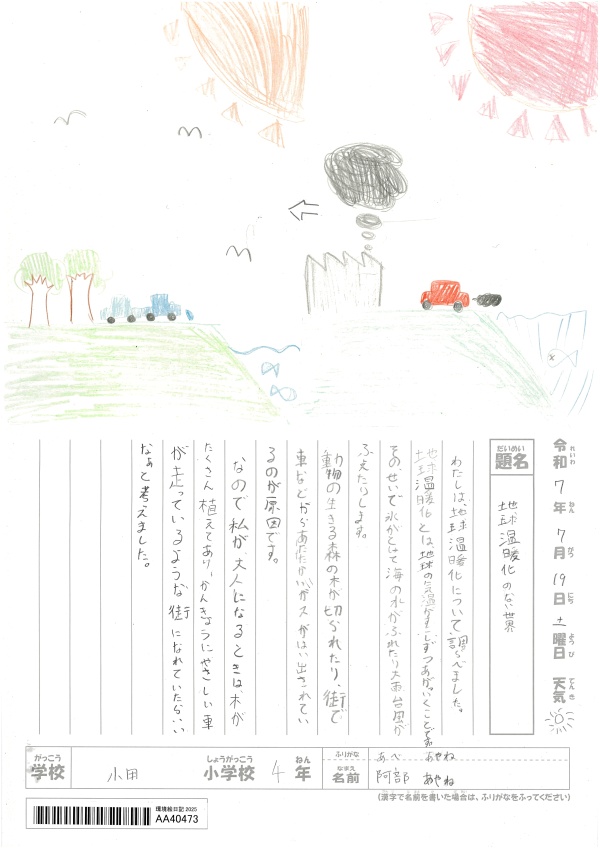 令和 7年 7月 19日 土曜日 天気
れいわ ねん がつ にち ようび てんき
だいめい
題名
地球温暖化のない世界
わたしは、地球温暖化について調べました。
地球温暖化とは、地球の気温がすこしずつあがっていくことです。
そのせいで氷がとけて海の水がふえたり大雨台風が
ふえたりします。
動物の生きる森の木が切られたり、街で
車などからあたたかいガスがはい出されてい
るのが原因です。
なので私が大人になるときは、木が
たくさん植えてあり、かんきょうにやさしい車
が走っているような街になれていたらいい
なぁと考えました。
がっこう
学校
小田
しょうがっこう
小学校
4
ねん
年
ふりがな
あべ あやね
なまえ
名前
阿部 あやね
(漢字で名前を書いた場合は、ふりがなをふってください)
環境絵日記 2025
AA40473